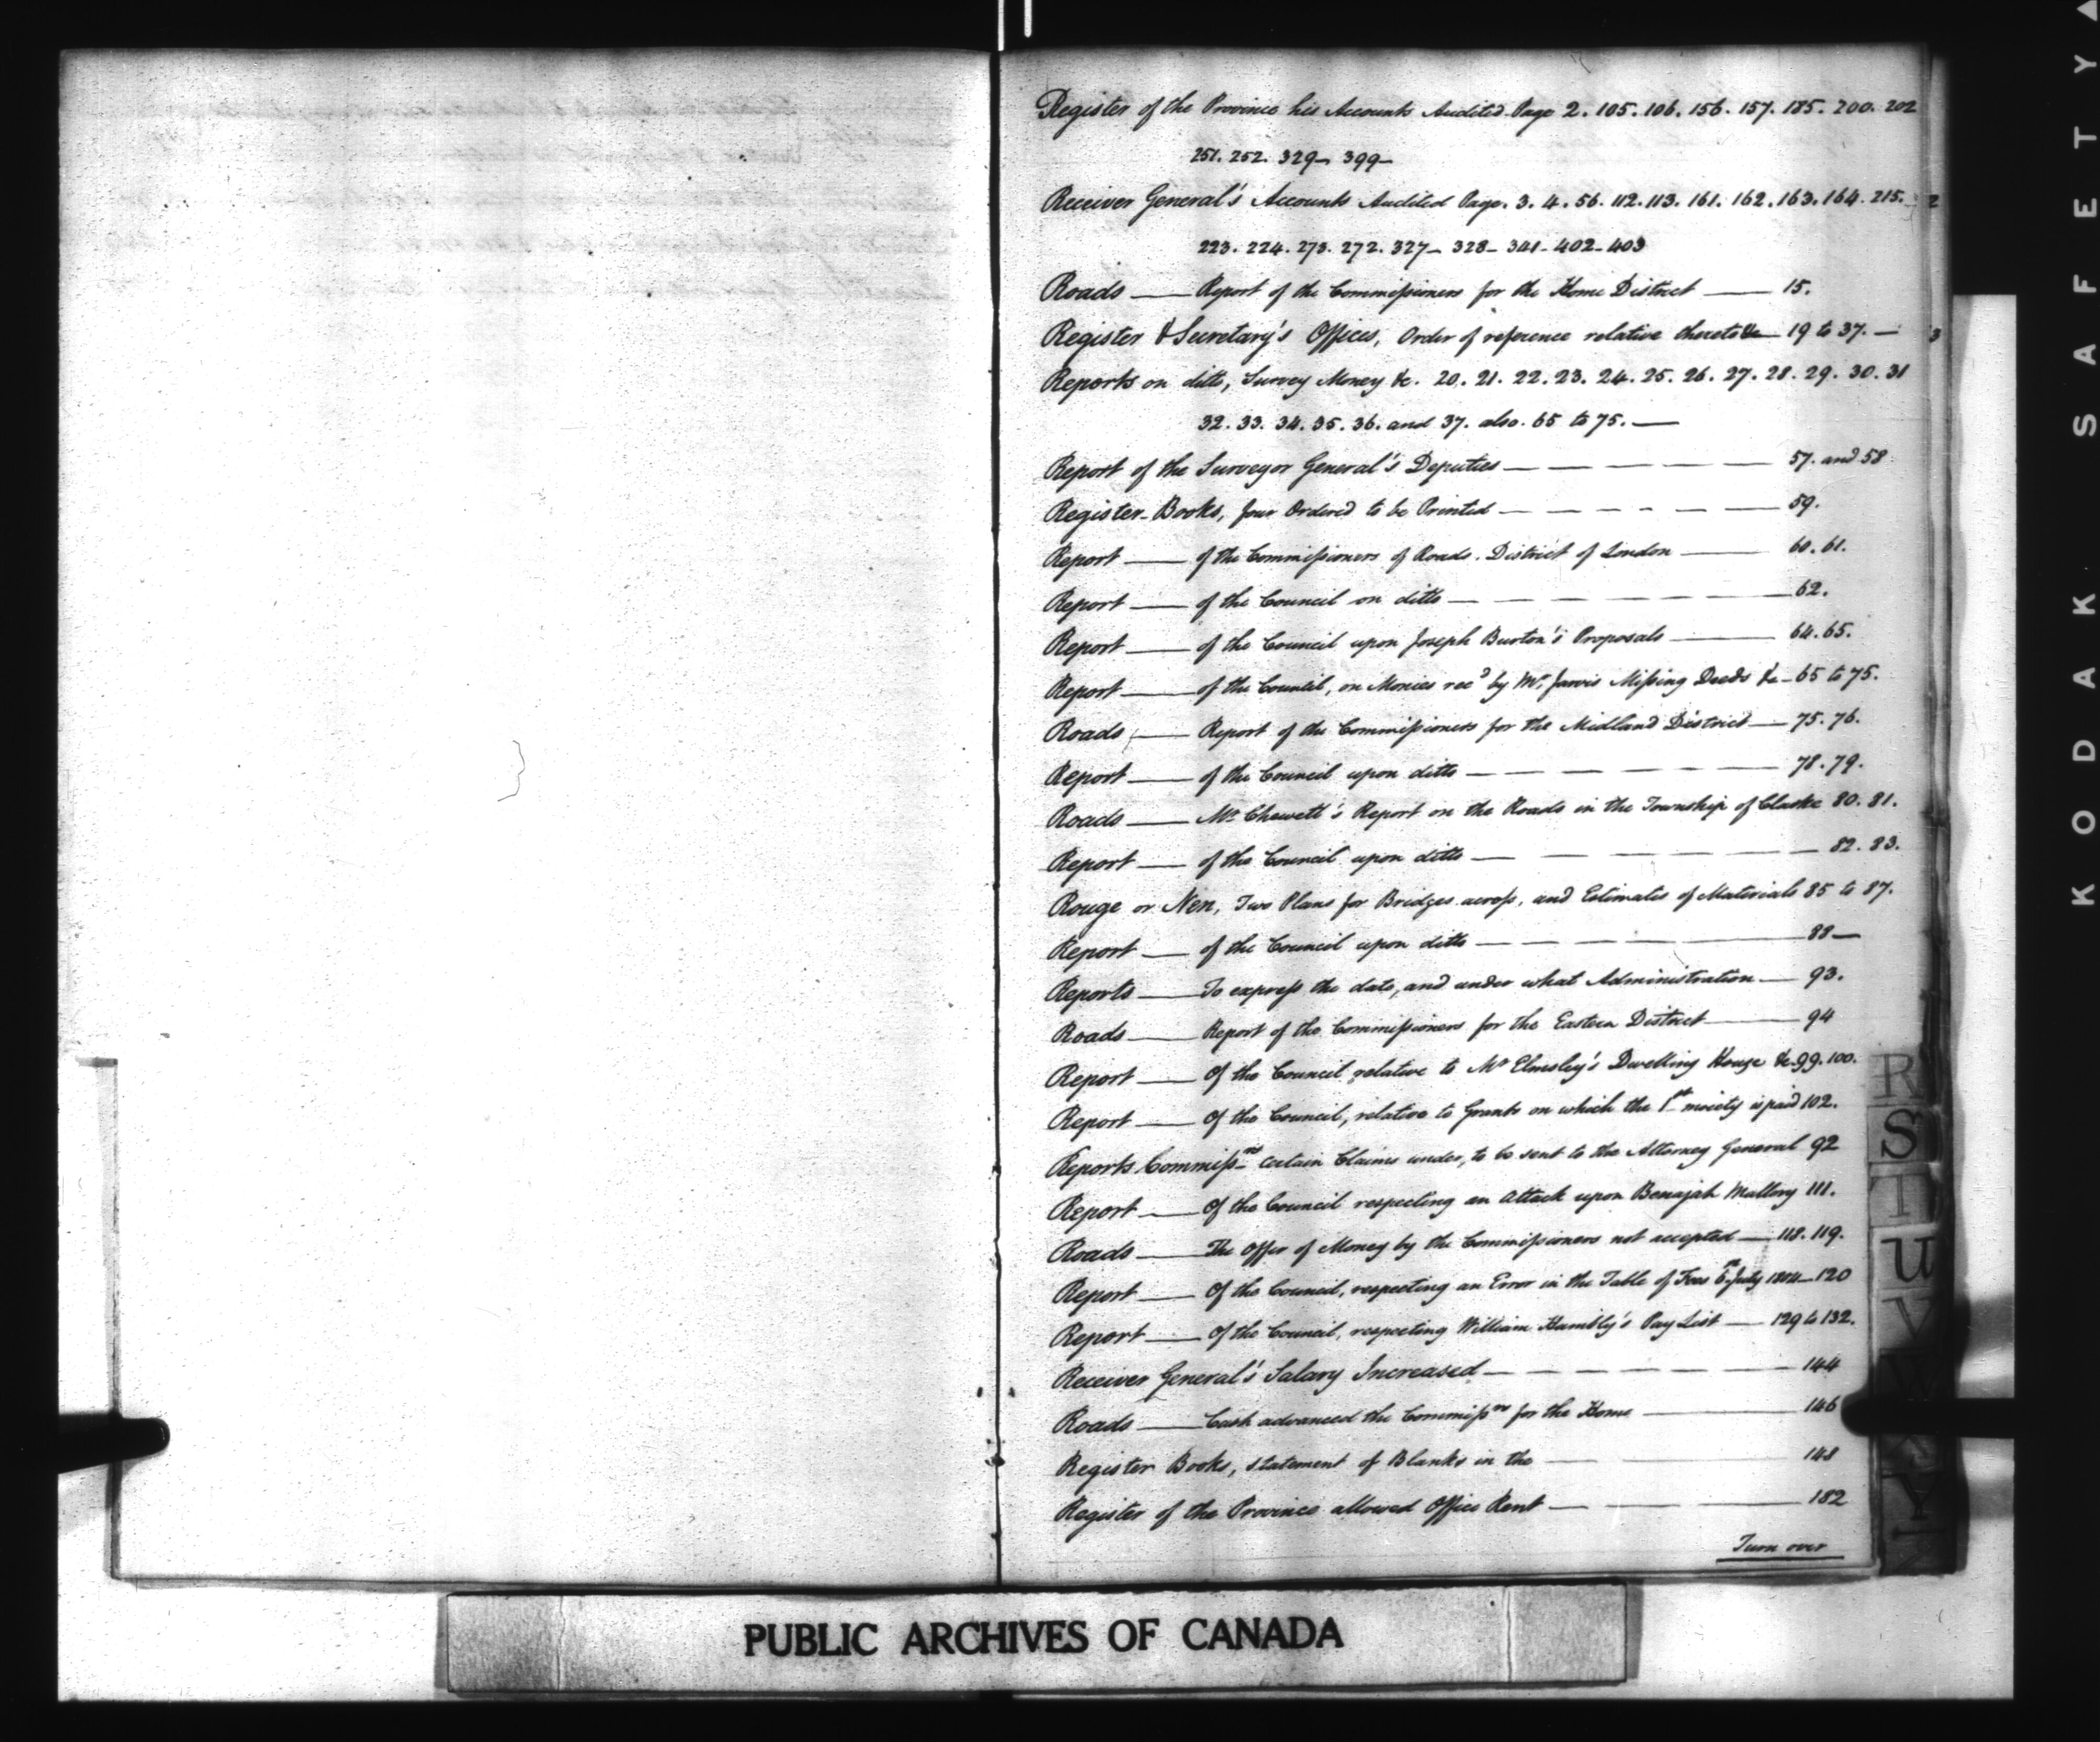 Register of the Province his Accounts Audited Page 2. 105. 106. 156. 157. 185. 200. 202
251. 252. 329- 399-
Receiver General's Accounts Audited Page. 3. 4. 56. 112. 113. 161. 162. 163. 164. 215.
223. 224. 273. 272. 327- 328- 341- 402- 403
Roads — Report of the Commissioners for the Home District — 15.
Register & Secretary's Offices, Order of reference relative thereto &c — 19 to 37. —
Reports on ditto, Survey Money &c. 20. 21. 22. 23. 24. 25. 26. 27. 28. 29. 30. 31
32. 33. 34. 35. 36. and 37. also. 65 to 75. —
Report of the Surveyor General's Deputies — 57. and 58
Register Books, four Ordered to be Printed — 59.
Report — of the Commissioners of Roads. District of London — 60. 61.
Report — of the Council on ditto — 62.
Report — of the Council upon Joseph Burton's Proposals — 64. 65.
Report — of the Council, on Monies rec'd by Mr. Jarvis Missing Deeds &c - 65 to 75.
Roads — Report of the Commissioners for the Midland District — 75. 76.
Report — of the Council upon ditto — 78. 79.
Roads — Mr. Chewett's Report on the Roads in the Township of Clarke 80. 81.
Report — of the Council upon ditto — 82. 83.
Rouge or Nen, Two Plans for Bridges across, and Estimates of Materials 85 to 87.
Report — of the Council upon ditto — 88 —
Reports — To express the date, and under what Administration — 93.
Roads — Report of the Commissioners for the Eastern District — 94
Report — Of the Council relative to Mr Elmsley's Dwelling House &c. 99. 100.
Report — Of the Council, relative to Grants on which the 1st moiety is paid 102.
Reports Commissrs certain Claims under, to be sent to the Attorney General 92
Report — Of the Council respecting an Attack upon Benajah Mallory 111.
Roads — The Offer of Money by the Commissioners not accepted — 118. 119.
Report — Of the Council, respecting an Error in the Table of Fees 6th July 1804 — 120
Report — Of the Council, respecting William Hambly's Pay List — 129 to 132.
Receiver General's Salary Increased — 144
Roads — Cash advanced the Commissrs for the Home — 146
Register Books, statement of Blanks in the — 148
Register of the Province allowed Office Rent — 182
Turn over
R
S
T
U
V
Y
PUBLIC ARCHIVES OF CANADA
KODAK SAFETY